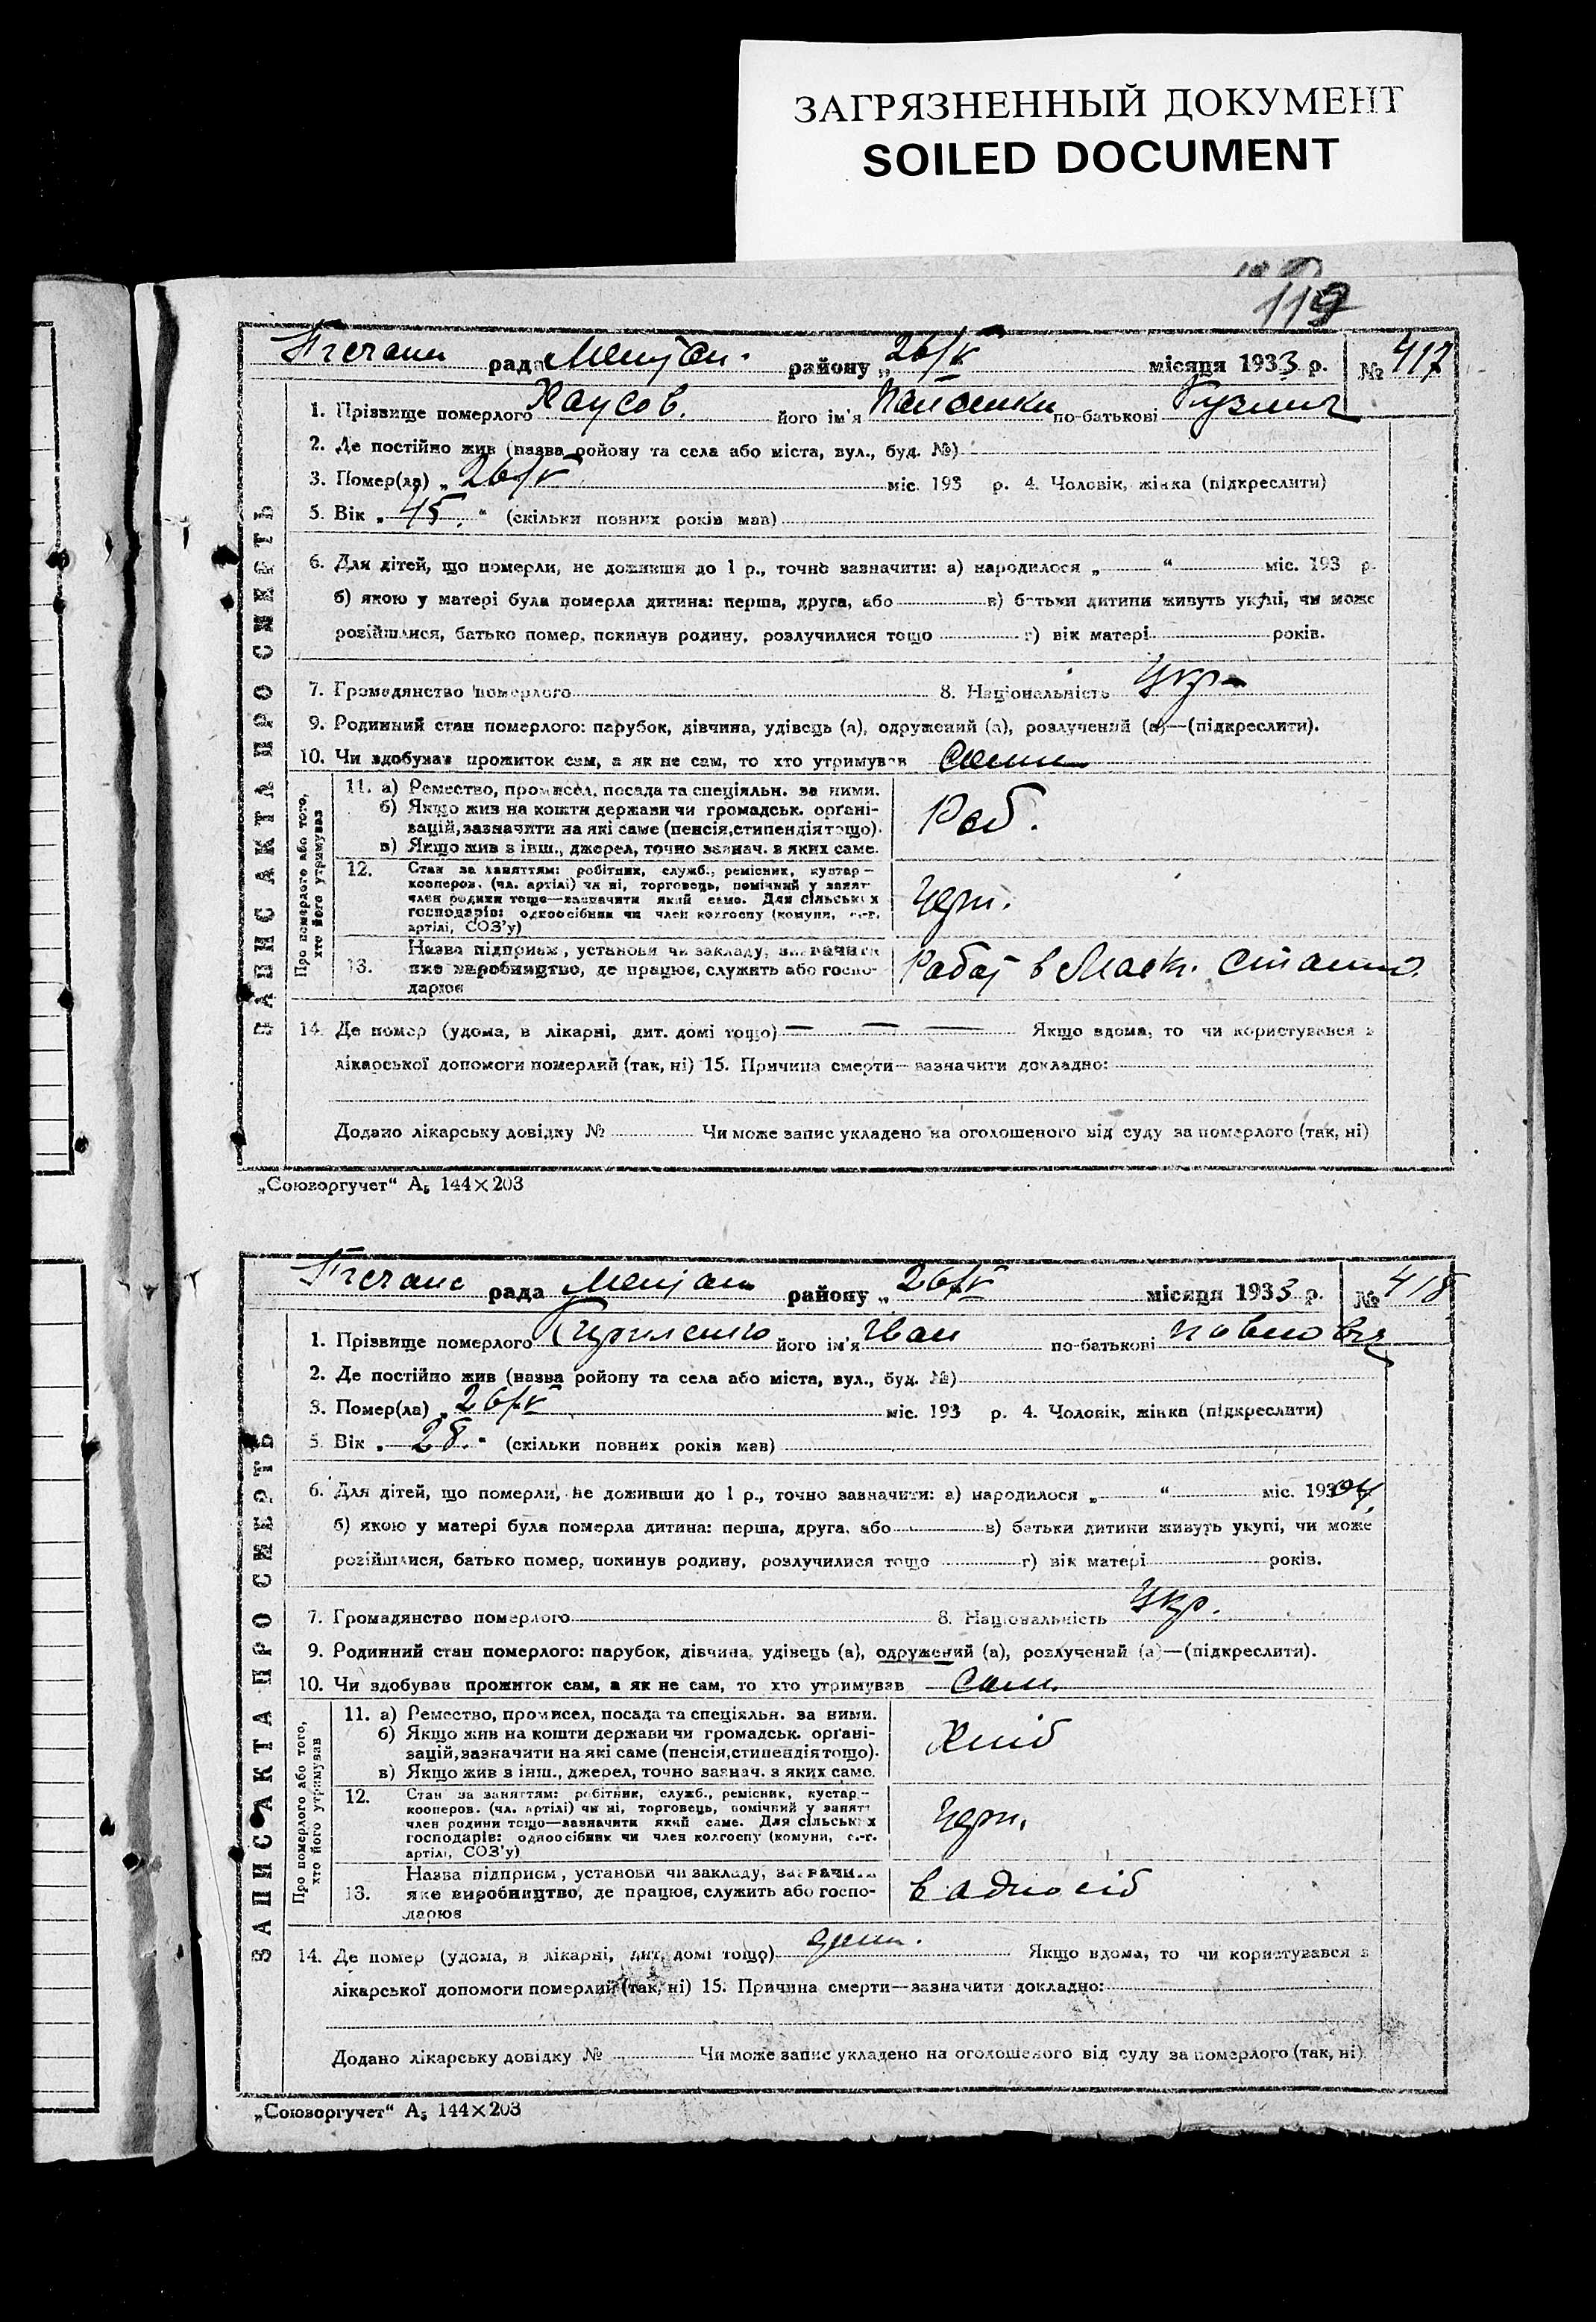 ЗАГРЯЗНЕННЫЙ ДОКУМЕНТ
SOILED DOCUMENT
119
рада району „26/V місяця 1933 р. № 417
ЗАПИС АКТА ПРО СМЕРТЬ
1. Прізвище померлого Хаусов. його ім'я по-батькові
2. Де постійно жив (назва ройону та села або міста, вул., буд. №)
3. Помер(ла) „ 26/V міс. 193 р. 4. Чоловік, жінка (підкреслити)
5. Вік „ 45. “ (скільки повних років мав)
6. Для дітей, що померли, не доживши до 1 р., точно зазначити: а) народилося „ “ міс. 193 р.
б) якою у матері була померла дитина: перша, друга, або в) батьки дитини живуть укупі, чи може
розійшлися, батько помер, покинув родину, розлучилися тощо г) вік матері років.
7. Громадянство померлого 8. Національність Укр.
9. Родинний стан померлого: парубок, дівчина, удівець (а), одружений (а), розлучений (а)—(підкреслити).
10. Чи здобував прожиток сам, а як не сам, то хто утримував
Про померлого або того, хто його утримував
11. а) Ремество, промисел, посада та спеціяльн. за ними.
б) Якщо жив на кошти держави чи громадськ. орґані-
зацій, зазначити на які саме (пенсія, стипендія тощо).
в) Якщо жив з інш., джерел, точно зазнач. з яких саме.
Роб.
12. Стан за заняттям: робітник, служб., ремісник, кустар—
кооперов. (чл. артілі) чи ні, торговець, помічний у занят
член родини тощо—зазначити який саме. Для сільських
господарів: одноосібник чи член колгоспу (комуни, с.-г.
артілі, СОЗ'у)
13. Назва підприєм, установи чи закладу, зазначити
яке виробництво, де працює, служить або госпо-
дарює
14. Де помер (удома, в лікарні, дит. домі тощо) — — — Якщо вдома, то чи користувався з
лікарської допомоги померлий (так, ні) 15. Причина смерти—зазначити докладно:
Додано лікарську довідку № Чи може запис укладено на оголошеного від суду за померлого (так, ні)
„Союзоргучет“ А₅ 144×203
рада району „ 26/V місяця 1933 р. № 418
ЗАПИС АКТА ПРО СМЕРТЬ
1. Прізвище померлого його ім'я Иван по-батькові
2. Де постійно жив (назва ройону та села або міста, вул., буд. №)
3. Помер(ла) „ 26/V міс. 193 р. 4. Чоловік, жінка (підкреслити)
5. Вік „ 28. “ (скільки повних років мав)
6. Для дітей, що померли, не доживши до 1 р., точно зазначити: а) народилося „ “ міс. 193 04.
б) якою у матері була померла дитина: перша, друга, або в) батьки дитини живуть укупі, чи може
розійшлися, батько помер, покинув родину, розлучилися тощо г) вік матері років.
7. Громадянство померлого 8. Національність Укр.
9. Родинний стан померлого: парубок, дівчина, удівець (а), одружений (а), розлучений (а)—(підкреслити).
10. Чи здобував прожиток сам, а як не сам, то хто утримував Сам.
Про померлого або того, хто його утримував
11. а) Ремество, промисел, посада та спеціяльн. за ними.
б) Якщо жив на кошти держави чи громадськ. орґані-
зацій, зазначити на які саме (пенсія, стипендія тощо).
в) Якщо жив з інш., джерел, точно зазнач. з яких саме.
Хліб
12. Стан за заняттям: робітник, служб., ремісник, кустар.—
кооперов. (чл. артілі) чи ні, торговець, помічний у занятт
член родини тощо—зазначити який саме. Для сільських
господарів: одноосібник чи член колгоспу (комуни, с.-г.
артілі, СОЗ'у)
13. Назва підприєм, установи чи закладу, зазначити
яке виробництво, де працює, служить або госпо-
дарює
14. Де помер (удома, в лікарні, дит. домі тощо) Якщо вдома, то чи користувався з
лікарської допомоги померлий (так, ні) 15. Причина смерти—зазначити докладно:
Додано лікарську довідку № Чи може запис укладено на оголошеного від суду за померлого (так, ні)
„Союзоргучет“ А₅ 144×203